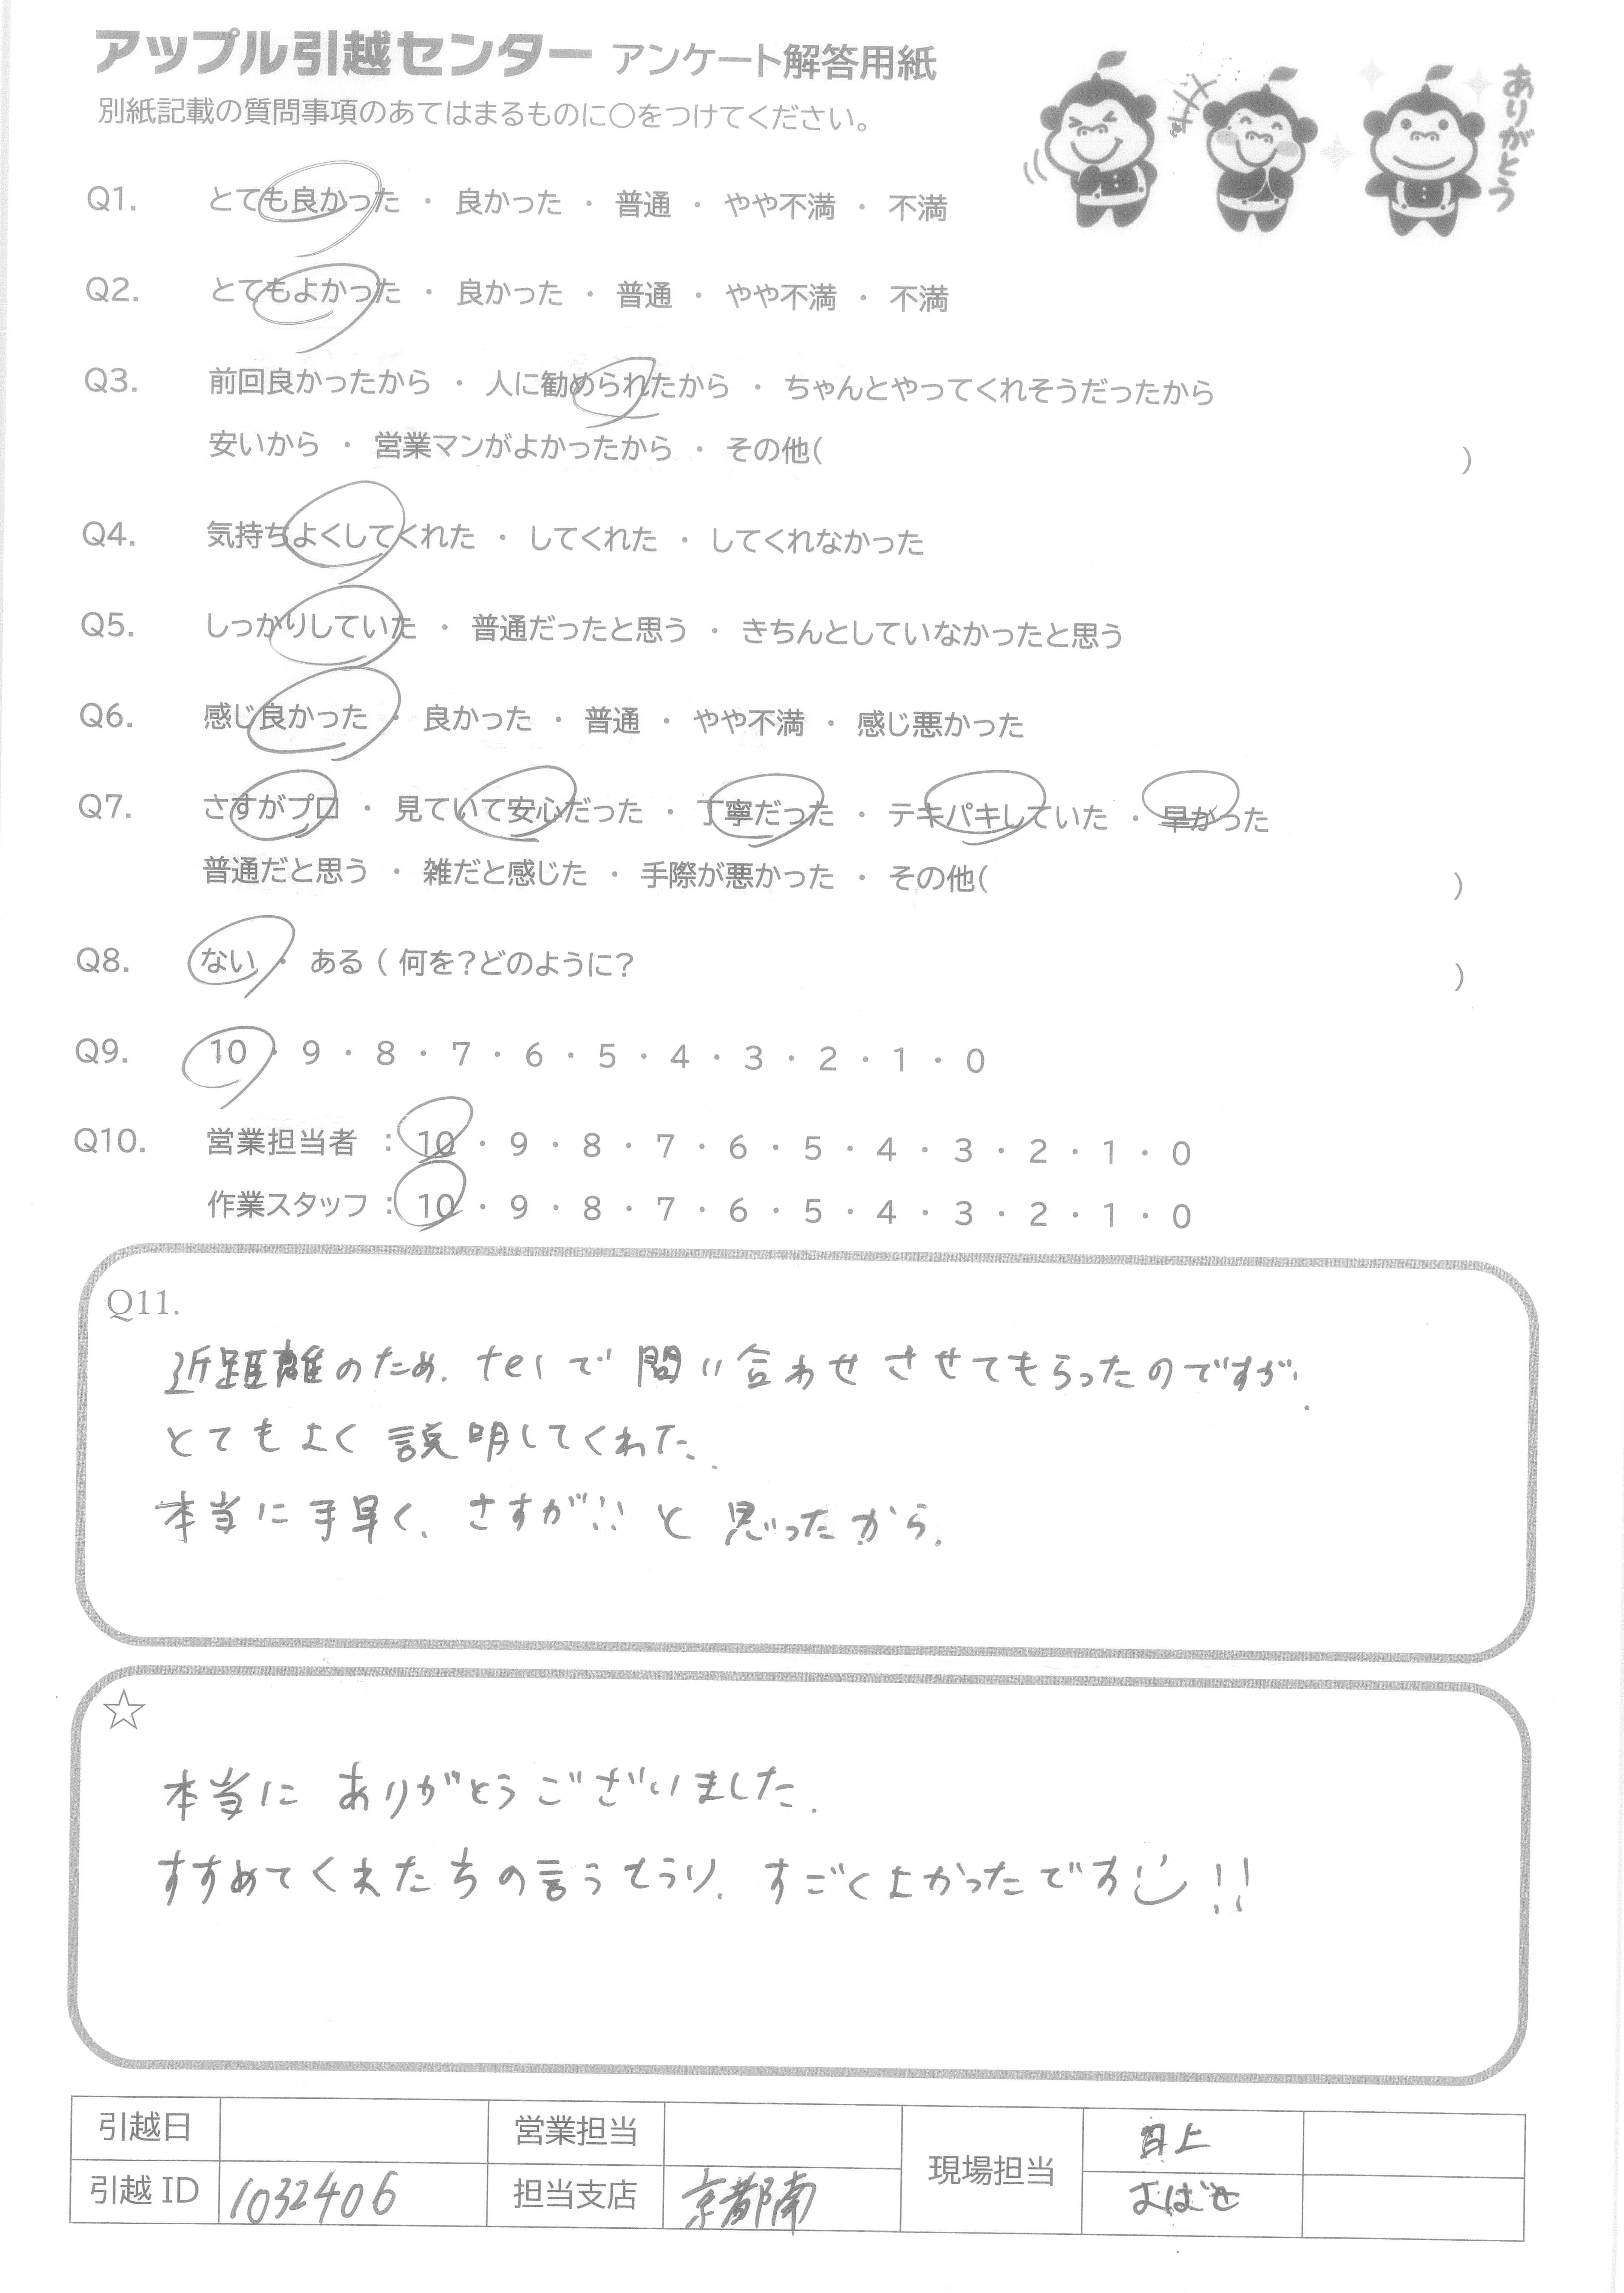 アップル引越センター アンケート解答用紙
別紙記載の質問事項のあてはまるものに○をつけてください。
ありがとう
Q1. とても良かった ・ 良かった ・ 普通 ・ やや不満 ・ 不満
Q2. とてもよかった ・ 良かった ・ 普通 ・ やや不満 ・ 不満
Q3. 前回良かったから ・ 人に勧められたから ・ ちゃんとやってくれそうだったから
安いから ・ 営業マンがよかったから ・ その他( )
Q4. 気持ちよくしてくれた ・ してくれた ・ してくれなかった
Q5. しっかりしていた ・ 普通だったと思う ・ きちんとしていなかったと思う
Q6. 感じ良かった ・ 良かった ・ 普通 ・ やや不満 ・ 感じ悪かった
Q7. さすがプロ ・ 見ていて安心だった ・ 丁寧だった ・ テキパキしていた ・ 早かった
普通だと思う ・ 雑だと感じた ・ 手際が悪かった ・ その他( )
Q8. ない ・ ある ( 何を?どのように? )
Q9. 10 ・ 9 ・ 8 ・ 7 ・ 6 ・ 5 ・ 4 ・ 3 ・ 2 ・ 1 ・ 0
Q10. 営業担当者 : 10 ・ 9 ・ 8 ・ 7 ・ 6 ・ 5 ・ 4 ・ 3 ・ 2 ・ 1 ・ 0
作業スタッフ : 10 ・ 9 ・ 8 ・ 7 ・ 6 ・ 5 ・ 4 ・ 3 ・ 2 ・ 1 ・ 0
Q11.
近距離のため、telで問い合わせさせてもらったのですが、
とてもよく説明してくれた。
本当に手早く、さすが!!と思ったから。
☆
本当にありがとうございました。
すすめてくれたちの言うとうり、すごくよかったです!!
引越日 営業担当 現場担当
引越 ID 1032406 担当支店 京都南